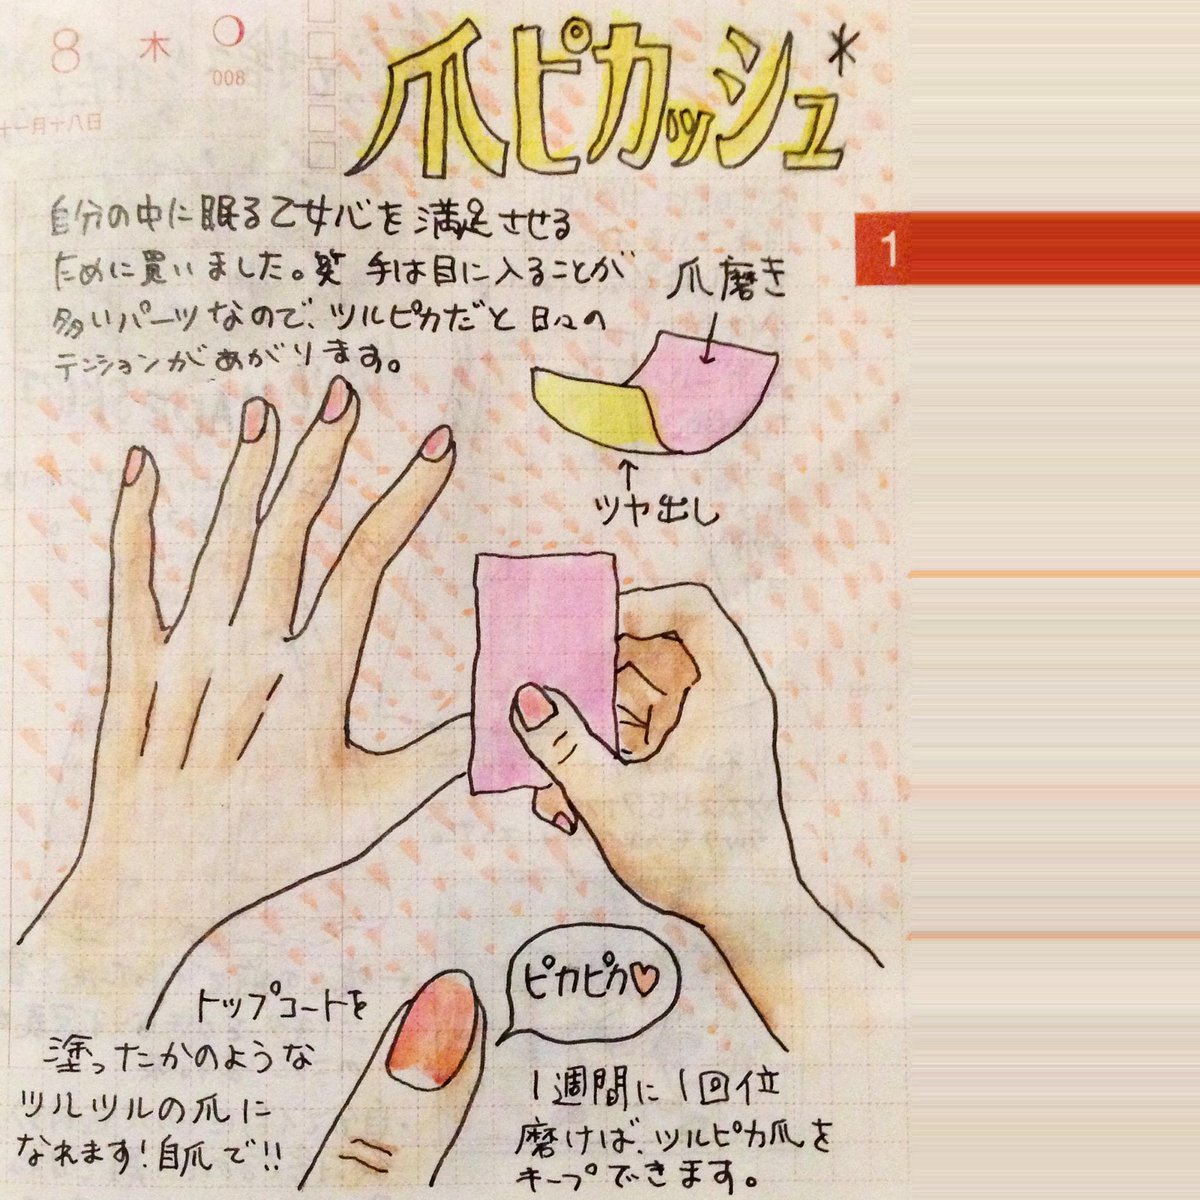 8 木
008
十一月十八日
爪ピカッシュ*
1
自分の中に眠る乙女心を満足させる
ために買いました。笑 手は目に入ることが
多いパーツなので、ツルピカだと日々の
テンションがあがります。
爪磨き
ツヤ出し
ピカピカ♡
トップコートを
塗ったかのような
ツルツルの爪に
なれます！自爪で!!
1週間に1回位
磨けば、ツルピカ爪を
キープできます。